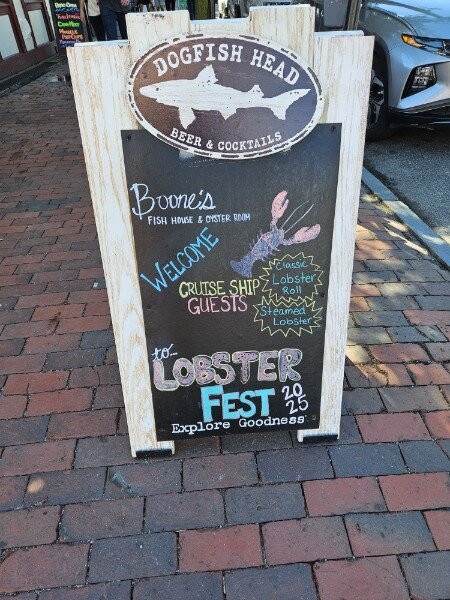 DOGFISH HEAD
BEER & COCKTAILS
Boone's
FISH HOUSE & OYSTER ROOM
WELCOME
CRUISE SHIP
GUESTS
Classic
Lobster
Roll
Steamed
Lobster
to...
LOBSTER
FEST 2025
Explore Goodness